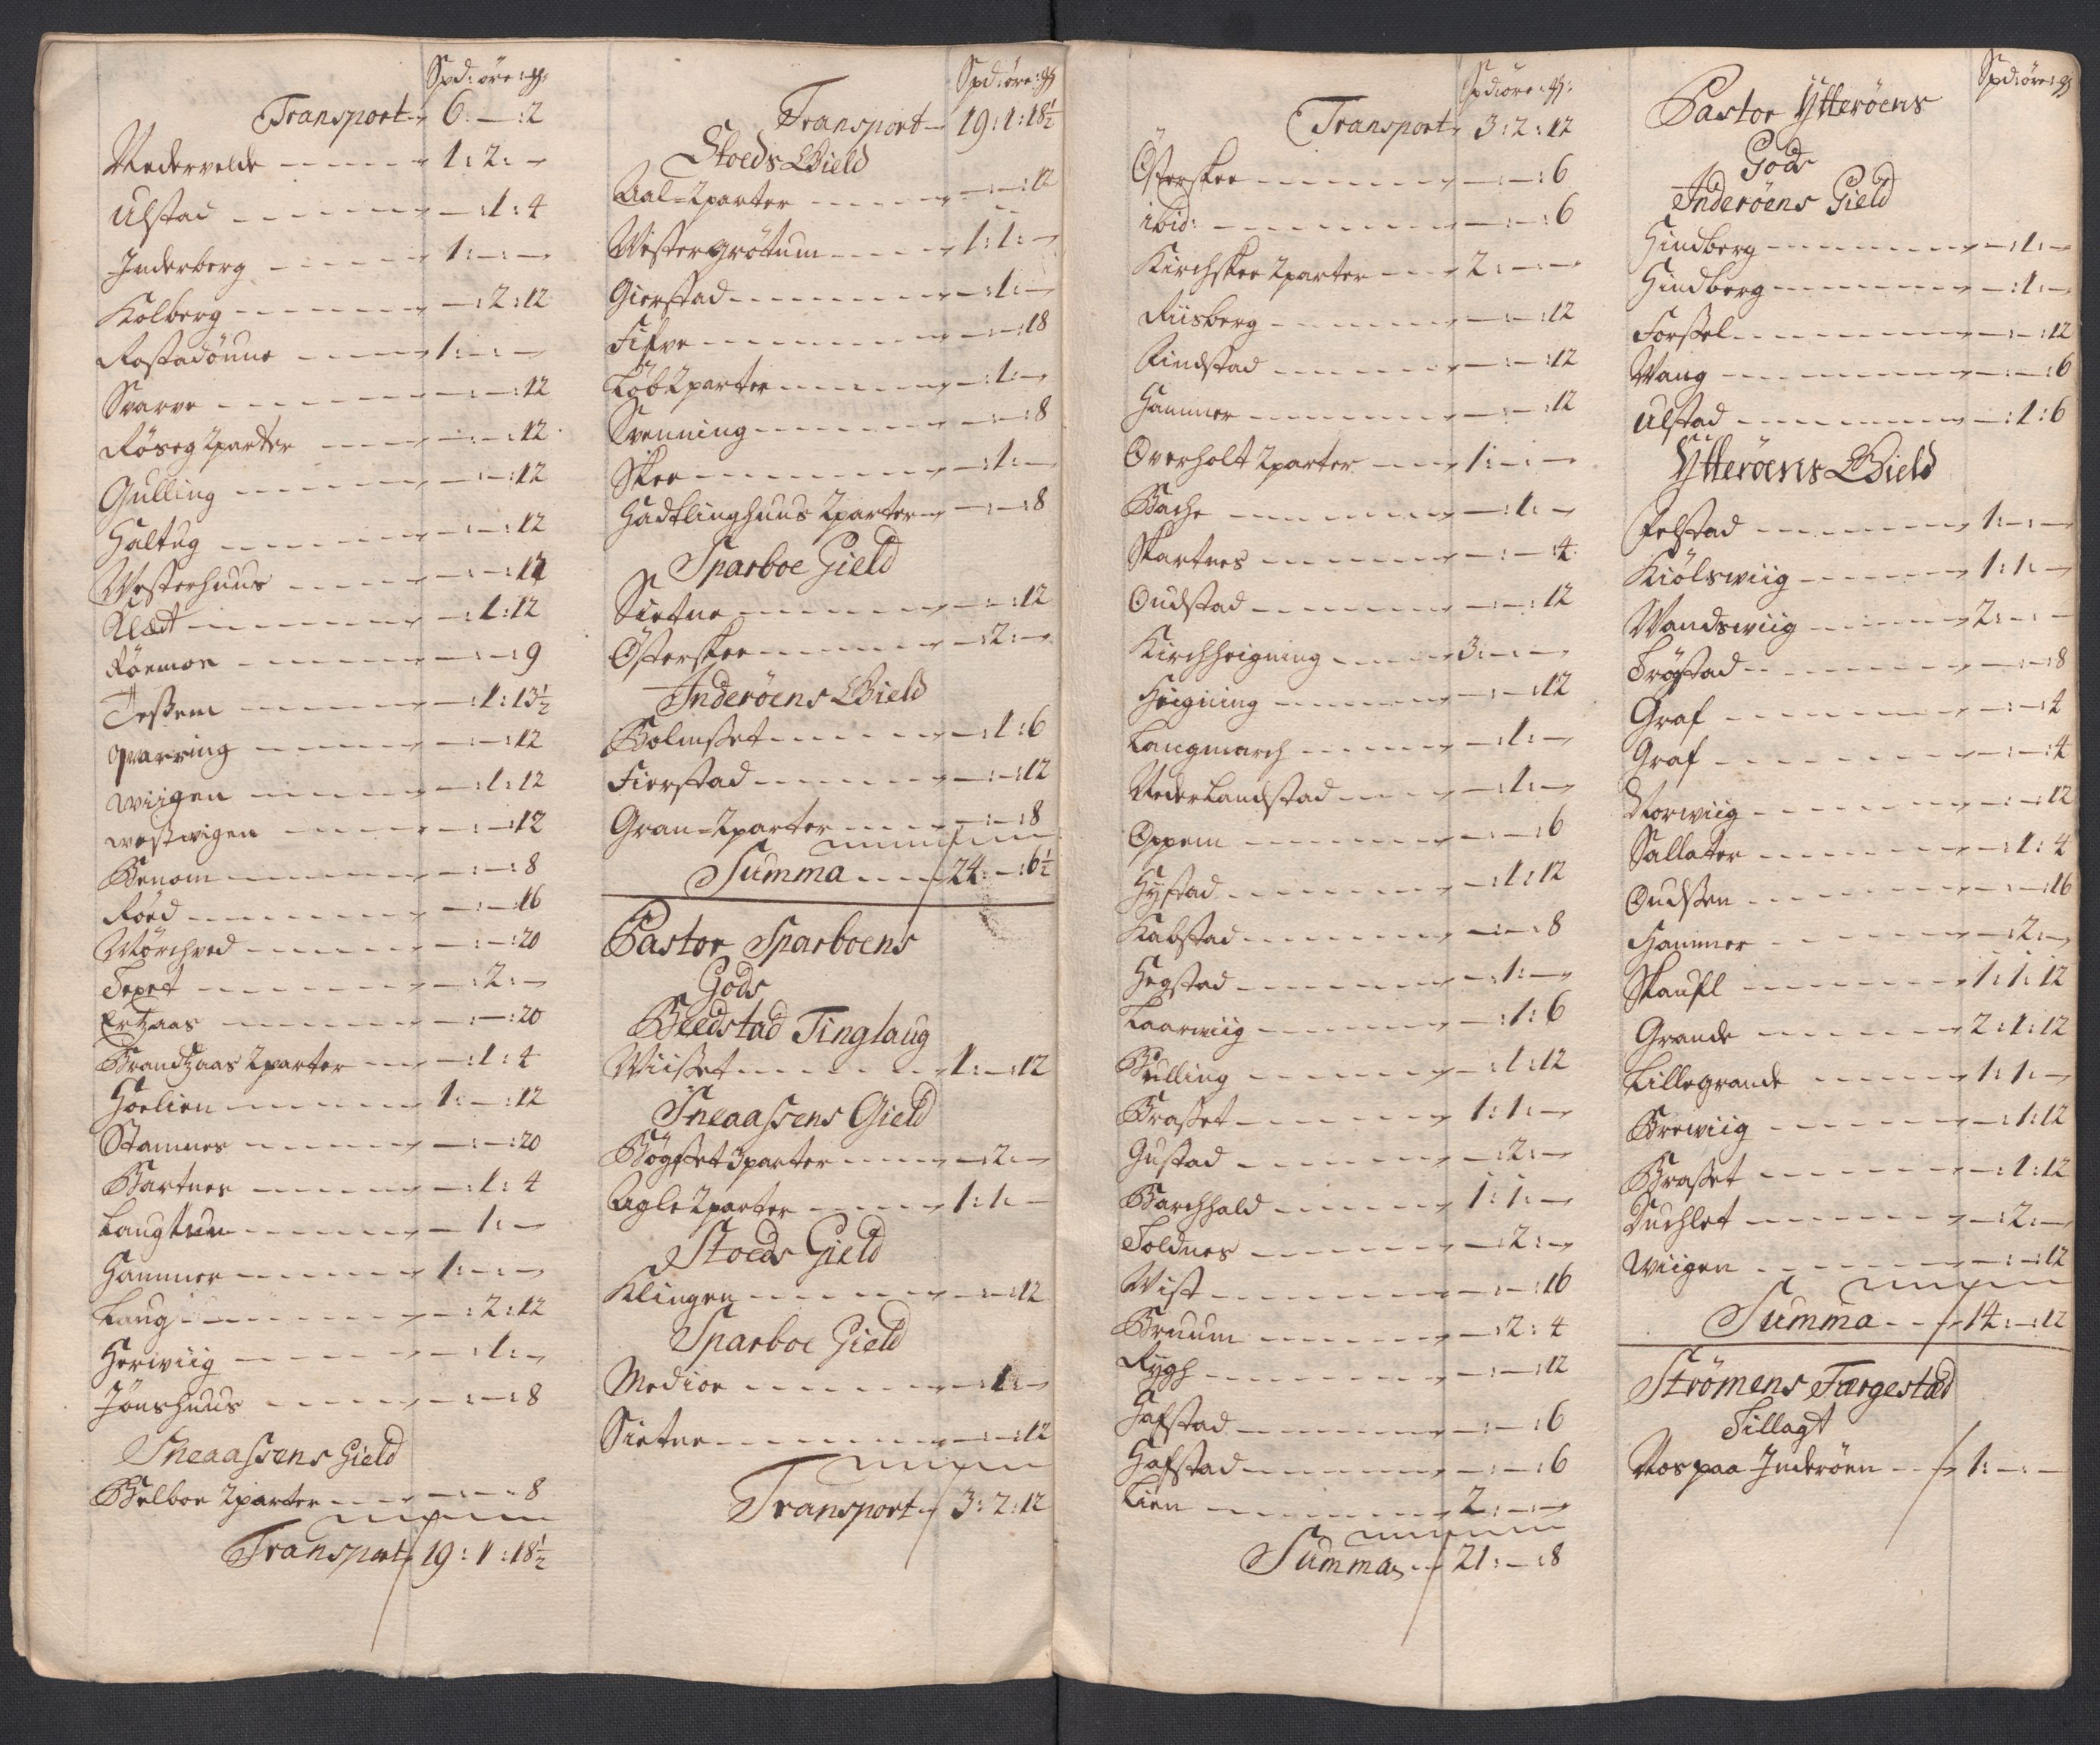 Spd: öre: gℓ:
Transport 6: — :2
Nedervelde 1: 2: —
Ulstad — :1: 4
Inderberg 1: — : —
Kolberg — :2:12
Rostadönne 1: — : —
Svarve — : — :12
Röseg 2parter — : — :12
Gulling — : — :12
Haltug — : — :12
Vesterhuus — : — :12
Aldt — :1:12
Röemoe — : — :9
Tessem — :1:13½
Qvarring — : — :12
Wiigen — :1:12
Westwigen — : — :12
Benom — : — :8
Röed — : — :16
Mörchved — : — :20
Texet — :2: —
Ertzaas — : — :20
Brandtzaas 2parter — :1: 4
Hoelien 1: — :12
Stamnes — : — :20
Bartnes — :1: 4
Langtun — 1: —
Hammer 1: — : —
Laug — :2:12
Herwiig — :1: —
Jönshuus — : — :8
Sneaassens Gield
Belboe 2parter — : — :8
Transport 19:1:18½
Spd: öre: gℓ
Transport 19:1:18½
Stoeds Gield
Aal=2parter — : — :12
Vestergröttum 1:1: —
Gierstad — :1: —
Fisve — : — :18
Töb 2parter — :1: —
Svenning — : — :8
Skee — :1: —
Hadklinghuus 2parter — : — :8
Sparboe Gield
Sietne — : — :12
Österskee — :2: —
Inderöens Gield
Bolmsset — :1:6
Fierstad — : — :12
Gran=2parter — : — :8
Summa 24: — :6½
Pastor Sparboens
Gods
Beedstad Tinglaug
Viisset 1: — :12
Sneaassens Gield
Bögsset 3parter — :2: —
Agle 2parter 1:1: —
Stoeds Gield
Klingen — : — :12
Sparboe Gield
Medioe — :1: —
Sietne — : — :12
Transport 3:2:12
Spd: öre: gℓ:
Transport 3:2:12
Österskee — : — :6
ibid: — : — :6
Kirchskee 2parter 2: — : —
Riisberg — : — :12
Rindstad — : — :12
Hammer — : — :12
Overholt 2parter 1: — : —
Bache — :1: —
Skartnes — : — :4
Oudstad — : — :12
Kirchheigning 3: — : —
Heigning — : — :12
Langmarch — :1: —
Nederlandstad — :1: —
Oppem — : — :6
Hystad — :1:12
Kabstad — : — :8
Hegstad — :1: —
Kaarwiig — :1:6
Bulling — :1:12
Brasset 1:1: —
Gustad — :2: —
Barchhald 1:1: —
Toldnes — :2: —
Vist — : — :16
Bruum — :2: 4
Rygh — : — :12
Hafstad — : — :6
Hafstad — : — :6
Lien 2: — : —
Summa 21: — :8
Spd: öre: gℓ
Pastor Ytteröens
Gods
Inderöens Gield
Hindberg — :1: —
Hindberg — :1: —
Forssel — : — :12
Wang — : — :6
Ulstad — :1:6
Ytteröens Gield
Felstad 1: — : —
Kiölswiig 1:1: —
Wandswiig 2: — : —
Trögstad — : — :8
Graf — : — :4
Graf — : — :4
Norwiig — : — :12
Sallater — :1: 4
Oudssen — : — :16
Hammer — :2: —
Skaufl 1:1:12
Grande 2:1:12
Lillegrande 1:1: —
Brewiig — :1:12
Brasset — :1:12
Duchlet — :2: —
Wiigen — : — :12
Summa 14: — :12
Strömens Færgestæd
Tillagt
Nos paa Inderöen 1: — : —